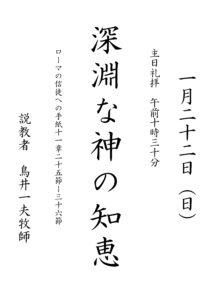 一月二十二日（日）
主日礼拝　午前十時三十分
深淵な神の知恵
ローマの信徒への手紙十一章二十五節ー三十六節
説教者　鳥井一夫牧師